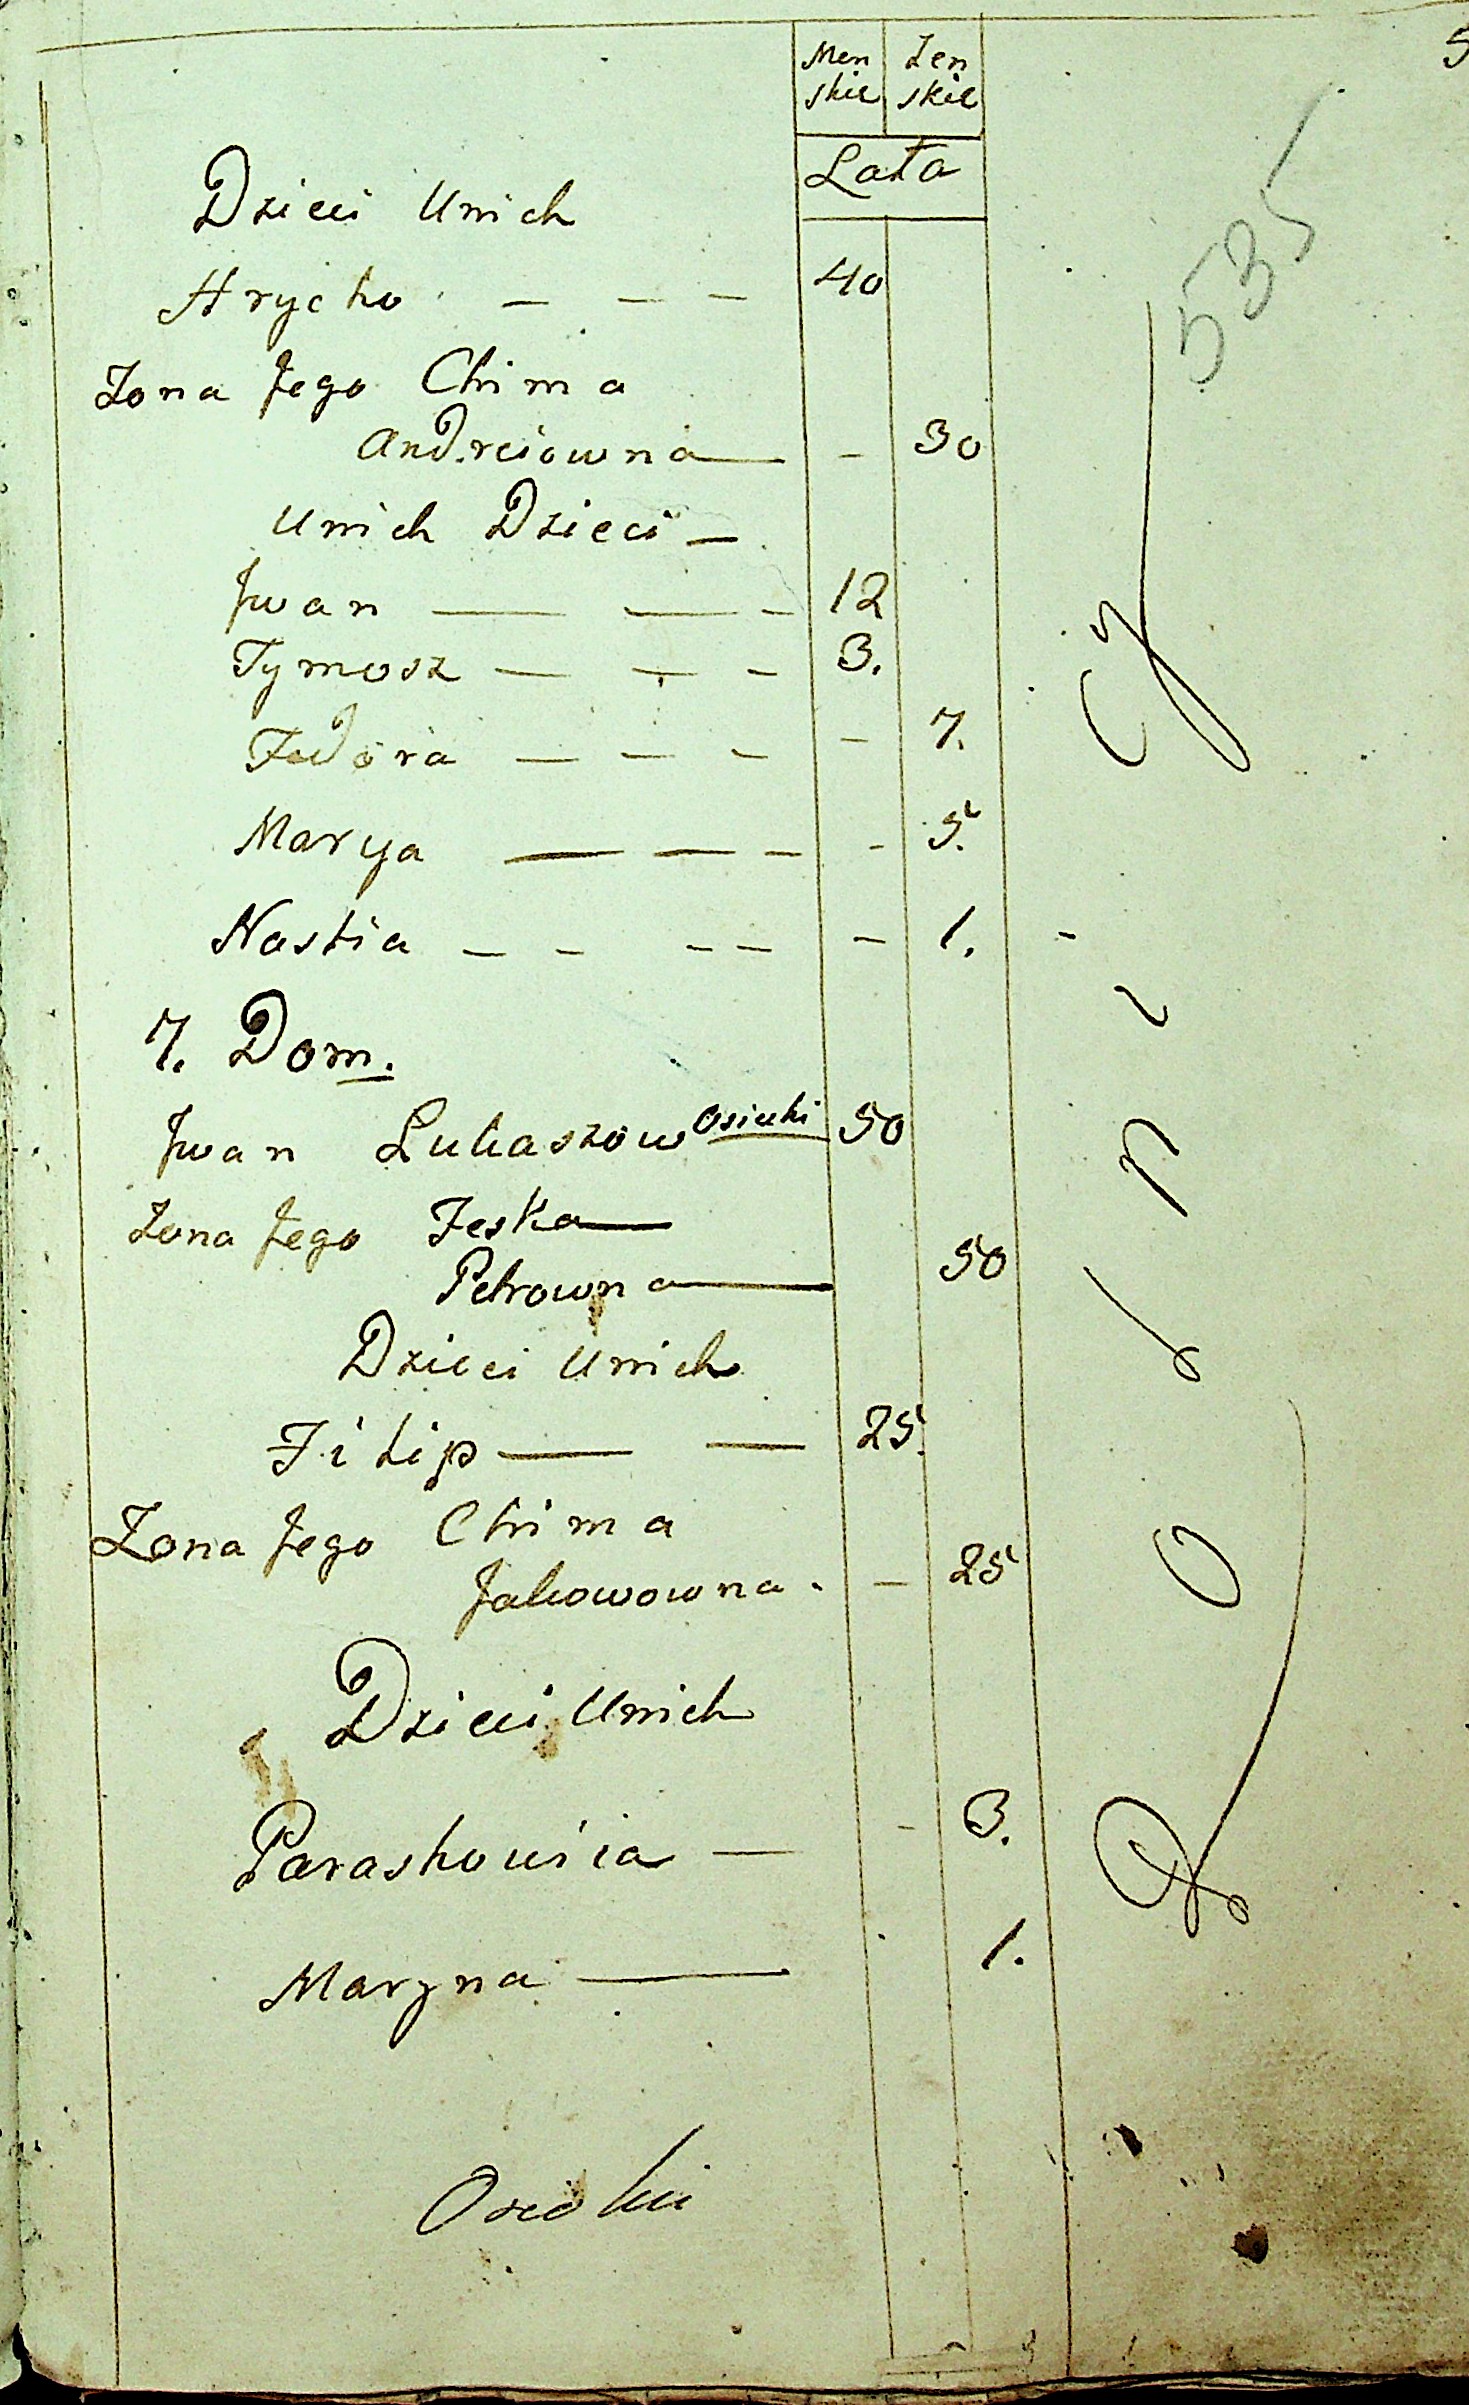 Men Zen
skie skie
Lata
5
535
Dzieci Unich
Hrycko — — — 40
Zona Jego Chima
Andreiowna — - 30
Unich Dzieci —
Jwan — — - 12
Tymosz — — - 3.
Fedora — — - - 7.
Marya — — - - 5.
Nastia — - - - - 1. -
7. Dom.
Jwan Lukaszow Osiecki 50
Zona Jego Feska —
Petrowna — 50
Dzieci Unich
Filip — — 25.
Zona Jego Chima
Jakowowna. - 25
Dzieci Unich
Paraskowia — - 3.
Maryna — 1.